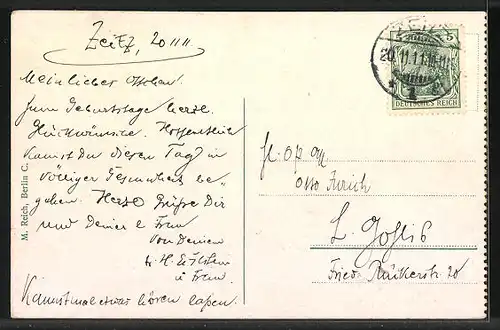 Zeitz, 20 11 11
Mein lieber
Zum Geburtstage herzl.
Glückwünsche. Hoffentlich
kannst Du diesen Tag in
völliger Gesundheit be-
gehen. Herzl Grüße Dir
und Deiner l Frau
von Deinem
u Frau
Kannst mal etwas hören laßen.
M. Reich, Berlin C.
5
20.11.11
DEUTSCHES REICH
Otto
L. Gohlis
20